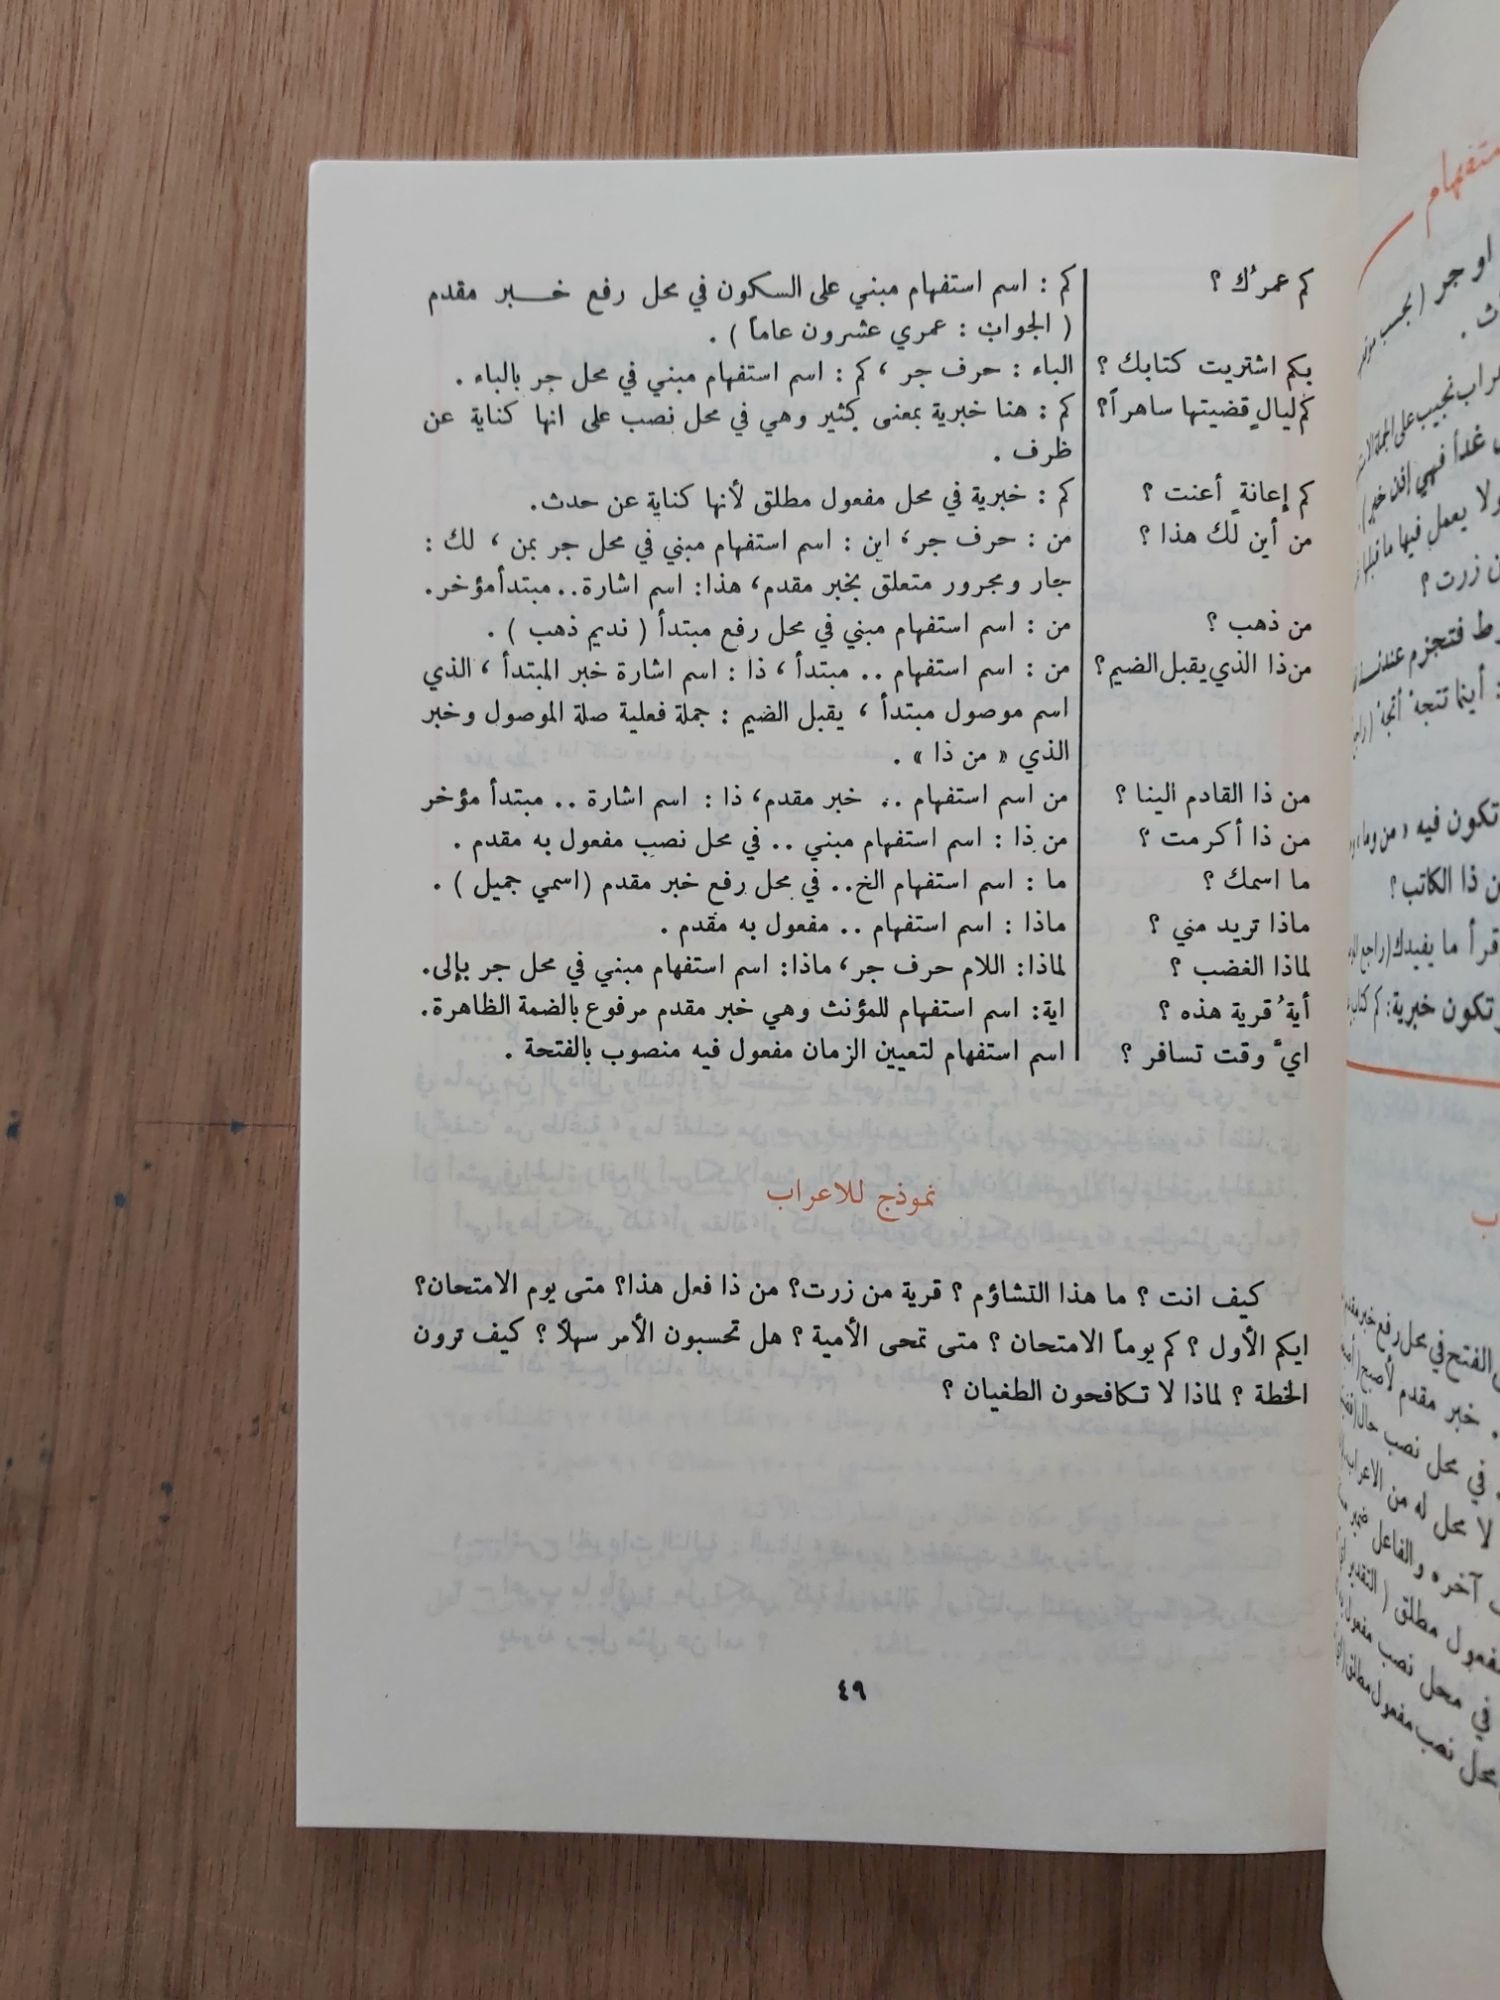 كم عمرُك ؟ كم : اسم استفهام مبني على السكون في محل رفع خبر مقدم
( الجواب : عمري عشرون عاماً ) .
بكم اشتريت كتابك ؟ الباء : حرف جر ، كم : اسم استفهام مبني في محل جر بالباء .
كم ليالٍ قضيتها ساهراً؟ كم : هنا خبرية بمعنى كثير وهي في محل نصب على انها كناية عن
ظرف .
كم إعانةٍ أعنت ؟ كم : خبرية في محل مفعول مطلق لأنها كناية عن حدث.
من أين لك هذا ؟ من : حرف جر، اين : اسم استفهام مبني في محل جر بمن ، لك :
جار ومجرور متعلق بخبر مقدم، هذا: اسم اشارة.. مبتدأ مؤخر.
من ذهب ؟ من : اسم استفهام مبني في محل رفع مبتدأ ( نديم ذهب ) .
من ذا الذي يقبل الضيم؟ من : اسم استفهام .. مبتدأ ، ذا : اسم اشارة خبر المبتدأ ، الذي
اسم موصول مبتدأ ، يقبل الضيم : جملة فعلية صلة الموصول وخبر
الذي « من ذا » .
من ذا القادم الينا ؟ من اسم استفهام .. خبر مقدم، ذا : اسم اشارة .. مبتدأ مؤخر
من ذا أكرمت ؟ من ذا : اسم استفهام مبني .. في محل نصب مفعول به مقدم .
ما اسمك ؟ ما : اسم استفهام الخ.. في محل رفع خبر مقدم (اسمي جميل ) .
ماذا تريد مني ؟ ماذا : اسم استفهام .. مفعول به مقدم .
لماذا الغضب ؟ لماذا: اللام حرف جر، ماذا: اسم استفهام مبني في محل جر بإلى.
أيةُ قرية هذه ؟ اية: اسم استفهام للمؤنث وهي خبر مقدم مرفوع بالضمة الظاهرة.
ايَّ وقت تسافر ؟ اسم استفهام لتعيين الزمان مفعول فيه منصوب بالفتحة .
نموذج للاعراب
كيف انت ؟ ما هذا التشاؤم ؟ قرية من زرت؟ من ذا فعل هذا؟ متى يوم الامتحان؟
ايكم الأول ؟ كم يوماً الامتحان ؟ متى تمحى الأمية ؟ هل تحسبون الأمر سهلاً ؟ كيف ترون
الخطة ؟ لماذا لا تكافحون الطغيان ؟
٤٩